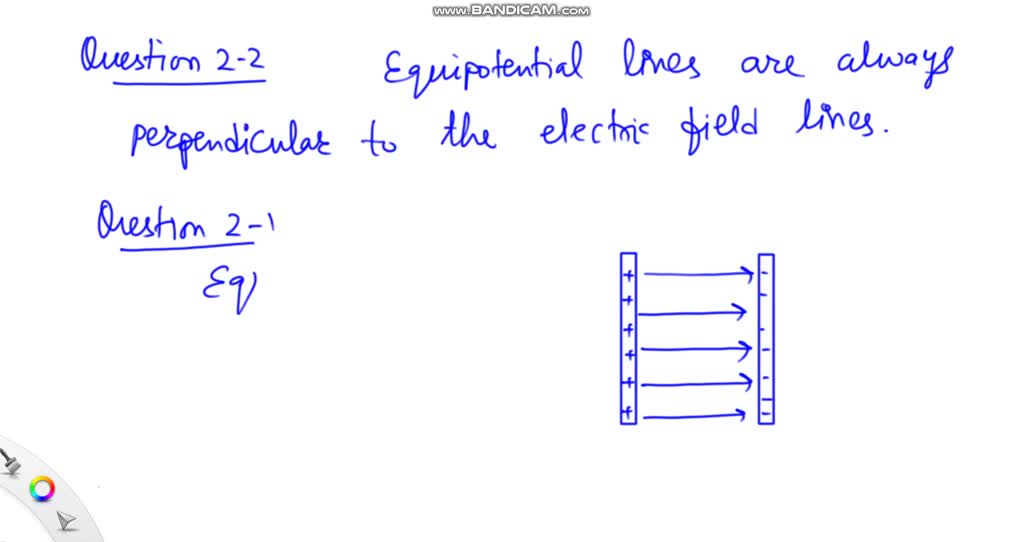 www.BANDICAM.com
Question 2-2 Equipotential lines are always
perpendicular to the electric field lines.
Question 2-1
Eq
+ -
+ -
+ -
+ -
+ -
+ -
-